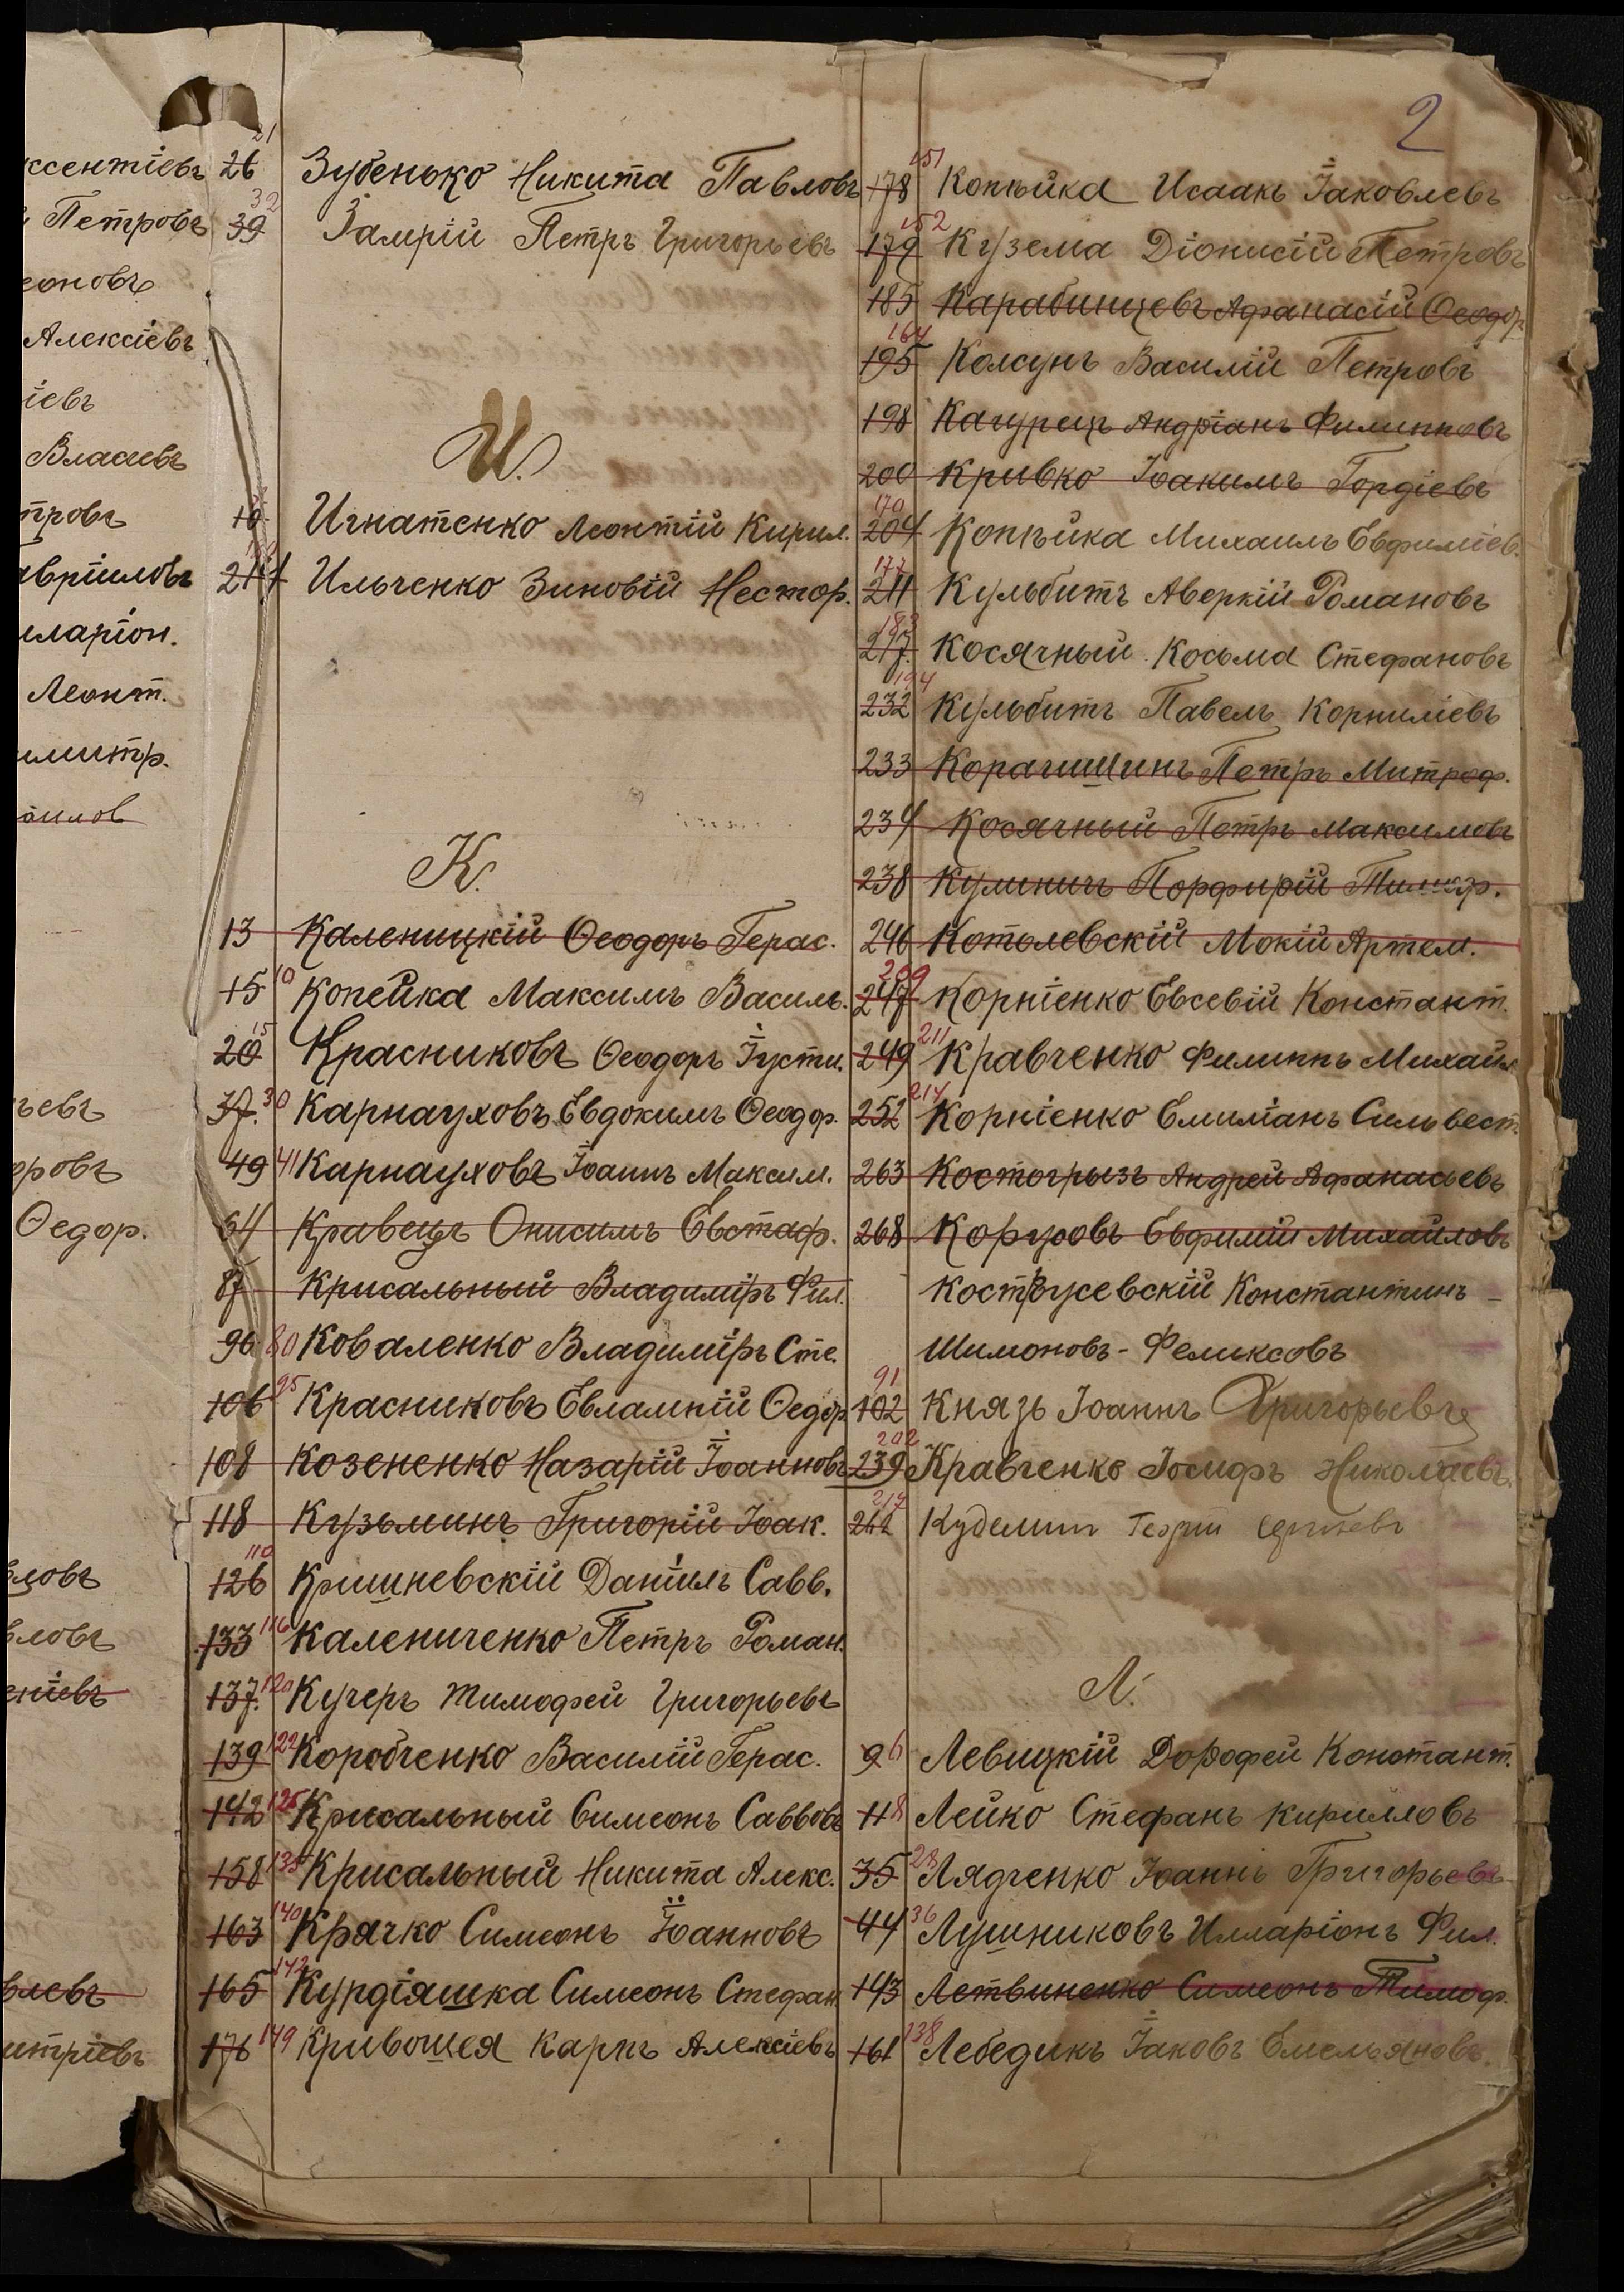 2
ксентіевъ
Петровъ
еоновъ
Алексіевъ
іевъ
Власіевъ
тровъ
авріиловъ
иларіон.
Леонт.
имитр.
аилов
ьевъ
оровъ
Ѳедор.
вловъ
вловъ
еніевъ
влевъ
итріевъ
26 21 Зубенько Никита Павловъ
39 32 Замрій Петръ Григорьевъ
И.
Игнатенко Леонтій Кирил.
Ильченко Зиновій Нестор.
К.
13 Каленицкій Ѳеодоръ Герас.
15 10 Копейка Максимъ Василь.
20 15 Красниковъ Ѳеодоръ Іусти.
37. 30 Карнауховъ Евдокимъ Ѳеодор.
49 41 Карнауховъ Іоаннъ Максим.
64 Кравецъ Онисимъ Евстаф.
87 Крисальный Владиміръ Фил.
96 80 Коваленко Владиміръ Сте.
106 95 Красниковъ Евлампій Ѳедор.
108 Козененко Назарій Іоанновъ
118 Кузьминъ Григорій Іоак.
126 110 Кришневскій Даніилъ Савв.
133 116 Калениченко Петръ Роман.
137. 120 Кучеръ Тимофей Григорьевъ
139 122 Коробченко Василій Герас.
142 125 Крисальный Симеонъ Саввовъ
158 135 Крисальный Никита Алекс.
163 140 Крячко Симеонъ Іоанновъ
165 142 Курдіяшка Симеонъ Стефан.
176 149 Кривошея Карпъ Алексіевъ
178 151 Копѣйка Исаакъ Іаковлевъ
179 152 Кузема Діонисій Петровъ
185 Карабинцевъ Афанасій Ѳеодор
195 164 Колсунъ Василій Петровъ
198 Качурецъ Андріанъ Филипповъ
200 Кривко Іоакимъ Гордіевъ
204 170 Копѣйка Михаилъ Евфиміев.
211 177 Кульбитъ Аверкій Романовъ
217. 183 Косячный Косьма Стефановъ
232 194 Кульбитъ Павелъ Корниліевъ
233 Корачишинъ Петръ Митроф.
234 Косячный Петръ Максимовъ
238 Куминичъ Порфирій
246 Котолевскій Мокій Артем.
247 209 Корніенко Евсевій Констант.
249 211 Кравченко Филиппъ Михаил
252 214 Корніенко Емиліанъ Сильвест.
263 Костогрызъ Андрей Афанасьевъ
268 Евфимій Михайловъ
Костусевскій Константинъ
Шимоновъ-Феликсовъ
102 91 Князь Іоаннъ Григорьевъ
239 202 Кравченко Іосифъ Николаевъ.
217
Л.
9 6 Левицкій Дорофей Констант.
11 8 Лейко Стефанъ Кирилловъ
35 28 Лядченко Іоаннъ Григорьевъ
44 36 Лушниковъ Илларіонъ Фил.
143 Летвиненко Симеонъ Тимоф.
161 138 Лебедикъ Іаковъ Емельяновъ.